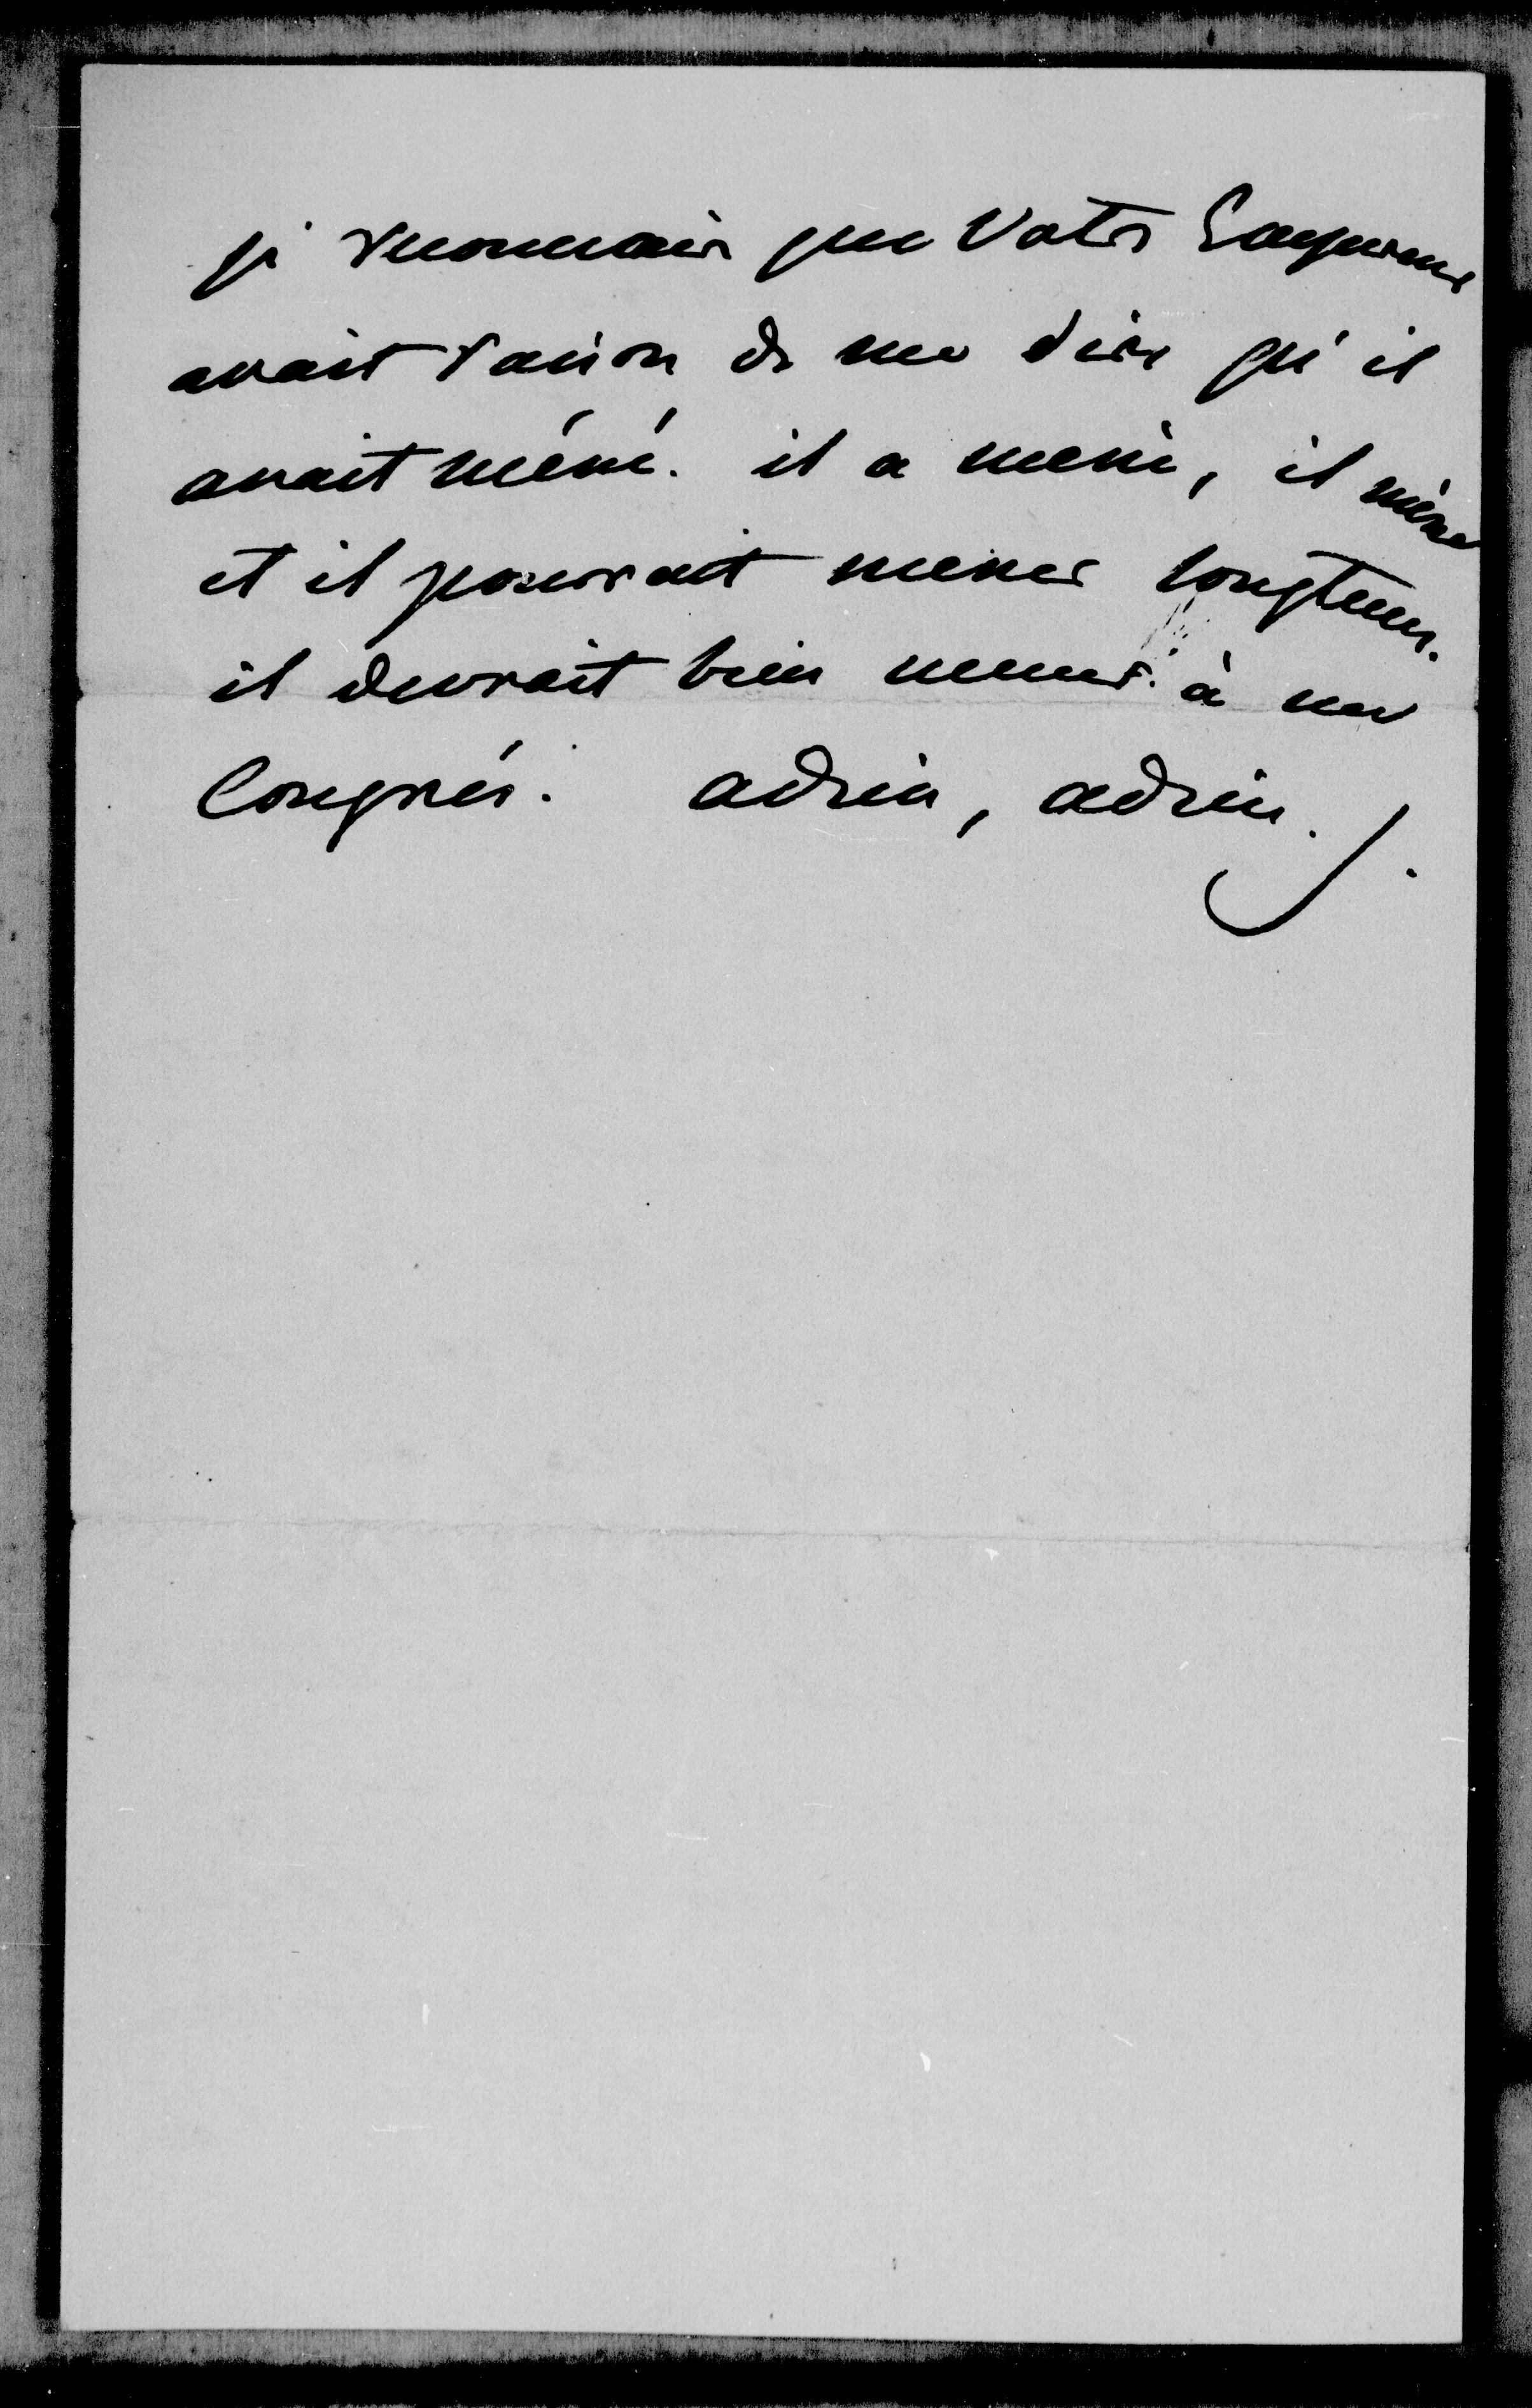 je reconnais que Votre Empereur
avait raison de me dire qu'il
avait mené. il a mené, il mène
et il pourrait mener longtems.
il devrait bien mener à un
Congrès. adieu, adieu. J.